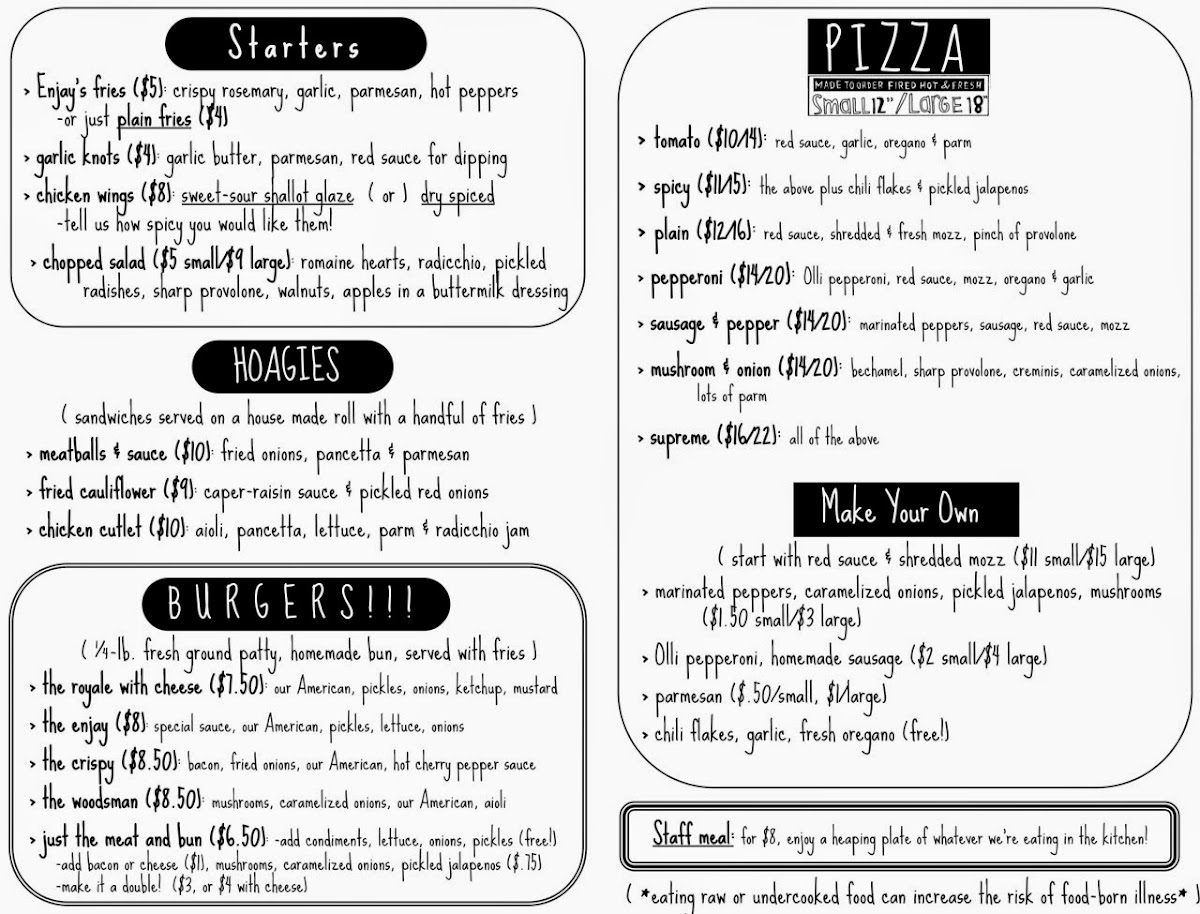 Starters
> Enjay's fries ($5): crispy rosemary, garlic, parmesan, hot peppers
-or just plain fries ($4)
> garlic knots ($4): garlic butter, parmesan, red sauce for dipping
> chicken wings ($8): sweet-sour shallot glaze ( or ) dry spiced
-tell us how spicy you would like them!
> chopped salad ($5 small/$9 large): romaine hearts, radicchio, pickled
radishes, sharp provolone, walnuts, apples in a buttermilk dressing
HOAGIES
( sandwiches served on a house made roll with a handful of fries )
> meatballs & sauce ($10): fried onions, pancetta & parmesan
> fried cauliflower ($9): caper-raisin sauce & pickled red onions
> chicken cutlet ($10): aioli, pancetta, lettuce, parm & radicchio jam
BURGERS!!!
( ¼-lb. fresh ground patty, homemade bun, served with fries )
> the royale with cheese ($7.50): our American, pickles, onions, ketchup, mustard
> the enjay ($8): special sauce, our American, pickles, lettuce, onions
> the crispy ($8.50): bacon, fried onions, our American, hot cherry pepper sauce
> the woodsman ($8.50): mushrooms, caramelized onions, our American, aioli
> just the meat and bun ($6.50): -add condiments, lettuce, onions, pickles (free!)
-add bacon or cheese ($1), mushrooms, caramelized onions, pickled jalapenos ($.75)
-make it a double! ($3, or $4 with cheese)
PIZZA
MADE TO ORDER FIRED HOT & FRESH
Small 12"/Large 18"
> tomato ($10/14): red sauce, garlic, oregano & parm
> spicy ($11/15): the above plus chili flakes & pickled jalapenos
> plain ($12/16): red sauce, shredded & fresh mozz, pinch of provolone
> pepperoni ($14/20): Olli pepperoni, red sauce, mozz, oregano & garlic
> sausage & pepper ($14/20): marinated peppers, sausage, red sauce, mozz
> mushroom & onion ($14/20): bechamel, sharp provolone, creminis, caramelized onions,
lots of parm
> supreme ($16/22): all of the above
Make Your Own
( start with red sauce & shredded mozz ($11 small/$15 large)
> marinated peppers, caramelized onions, pickled jalapenos, mushrooms
($1.50 small/$3 large)
> Olli pepperoni, homemade sausage ($2 small/$4 large)
> parmesan ($.50/small, $1/large)
> chili flakes, garlic, fresh oregano (free!)
Staff meal: for $8, enjoy a heaping plate of whatever we're eating in the kitchen!
( *eating raw or undercooked food can increase the risk of food-born illness* )